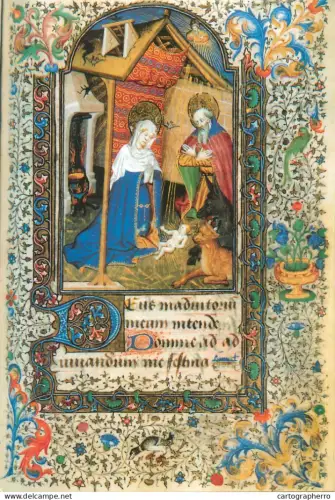 Deus in adiutoriū
meum intende
Domine ad ad
iuuandum me festina
cartographerro